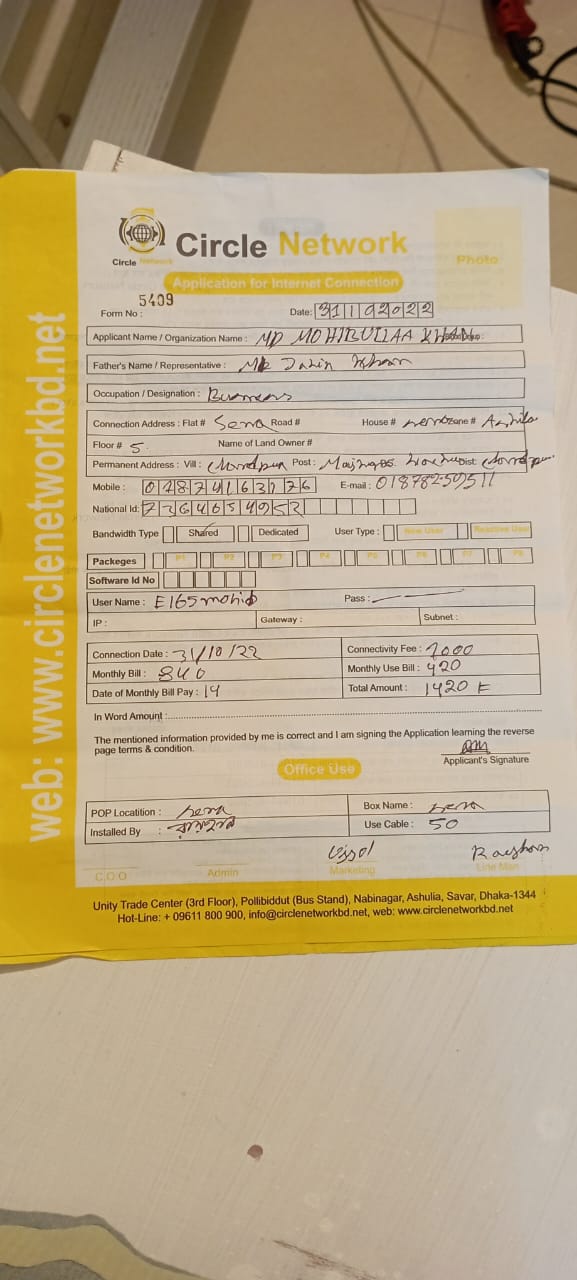 web: www.circlenetworkbd.net
Circle Network
Circle Network
Photo
Application for Internet Connection
Form No : 5409
Date: 31102022
Applicant Name / Organization Name : MD MOHIBULLAA KHAN
Father's Name / Representative : Khan
Occupation / Designation :
Connection Address : Flat # Sena Road # House # Zone #
Floor # 5 Name of Land Owner #
Permanent Address : Vill : Post : Dist
Mobile : E-mail :
National Id: 7364654952
Bandwidth Type Shared Dedicated User Type : New User Reactive User
Packeges P1 P2 P3 P4 P5 P6 P7 P8
Software Id No
User Name : E165mohib Pass :
IP : Gateway : Subnet :
Connection Date : 31/10/22 Connectivity Fee : 1000
Monthly Bill : 840 Monthly Use Bill : 420
Date of Monthly Bill Pay : 14 Total Amount : 1420
In Word Amount :
The mentioned information provided by me is correct and I am signing the Application learning the reverse
page terms & condition.
Applicant's Signature
Office Use
POP Locatition : Sena Box Name : Sena
Installed By : Use Cable : 50
C.O.O Admin Marketing Line Man
Unity Trade Center (3rd Floor), Pollibiddut (Bus Stand), Nabinagar, Ashulia, Savar, Dhaka-1344
Hot-Line: + 09611 800 900, info@circlenetworkbd.net, web: www.circlenetworkbd.net